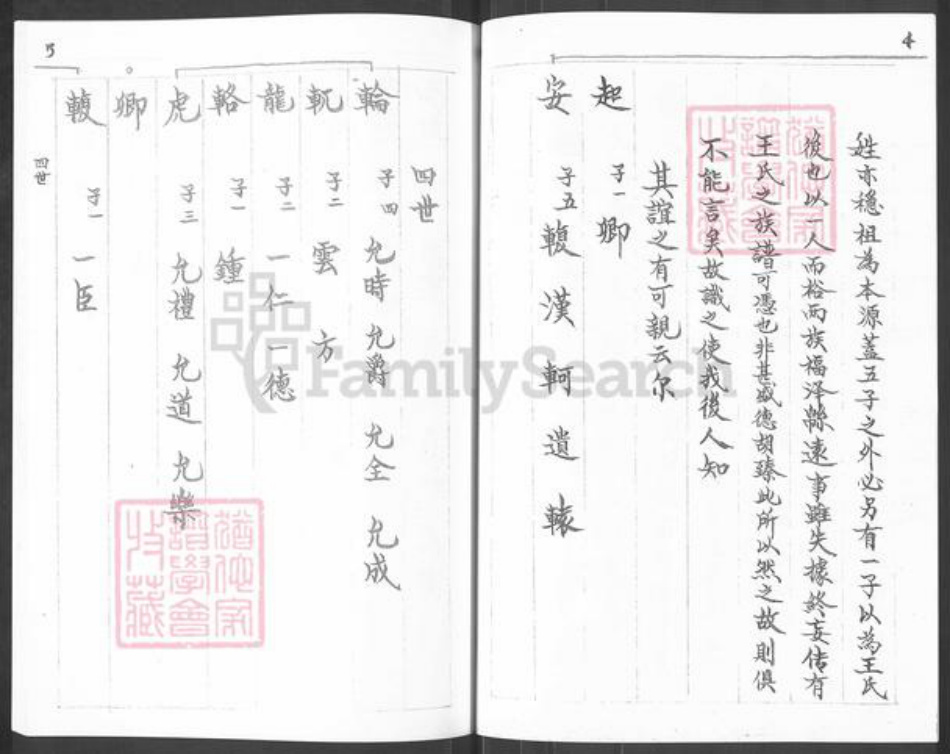 4
姓亦穏祖為本源蓋五子之外必另有一子以為王氏
後也以一人而裕両族福泽綿遠事雖失據終妄传有
王氏之族譜可憑也非甚盛德胡臻此所以然之故則俱
不能言矣故識之使我後人知
其誼之有可親云尔
起 子一 卿
安 子五 轅 漢 軻 遺 轅
5
四世
輪 子四 允時 允爵 允全 允成
軏 子二 雲 方
龍 子二 一仁 一德
輅 子一 鍾
虎 子三 允禮 允道 允樂
卿
子一 一臣
四世
FamilySearch
譜學會
收藏